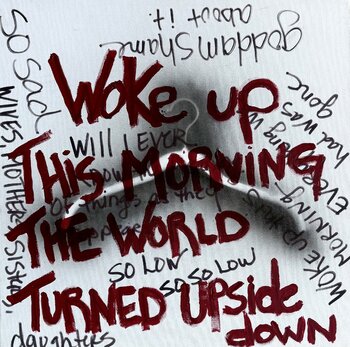 goddam shame
about it.
So Sad
Woke up
WILL I EVER
THIS MORNING
of things as they
THE WORLD
SO LOW
SO SO LOW
TURNED UPSIDE
down
WIVES, MOTHERS, SISTERS,
daughters
MORNING
had was
gone